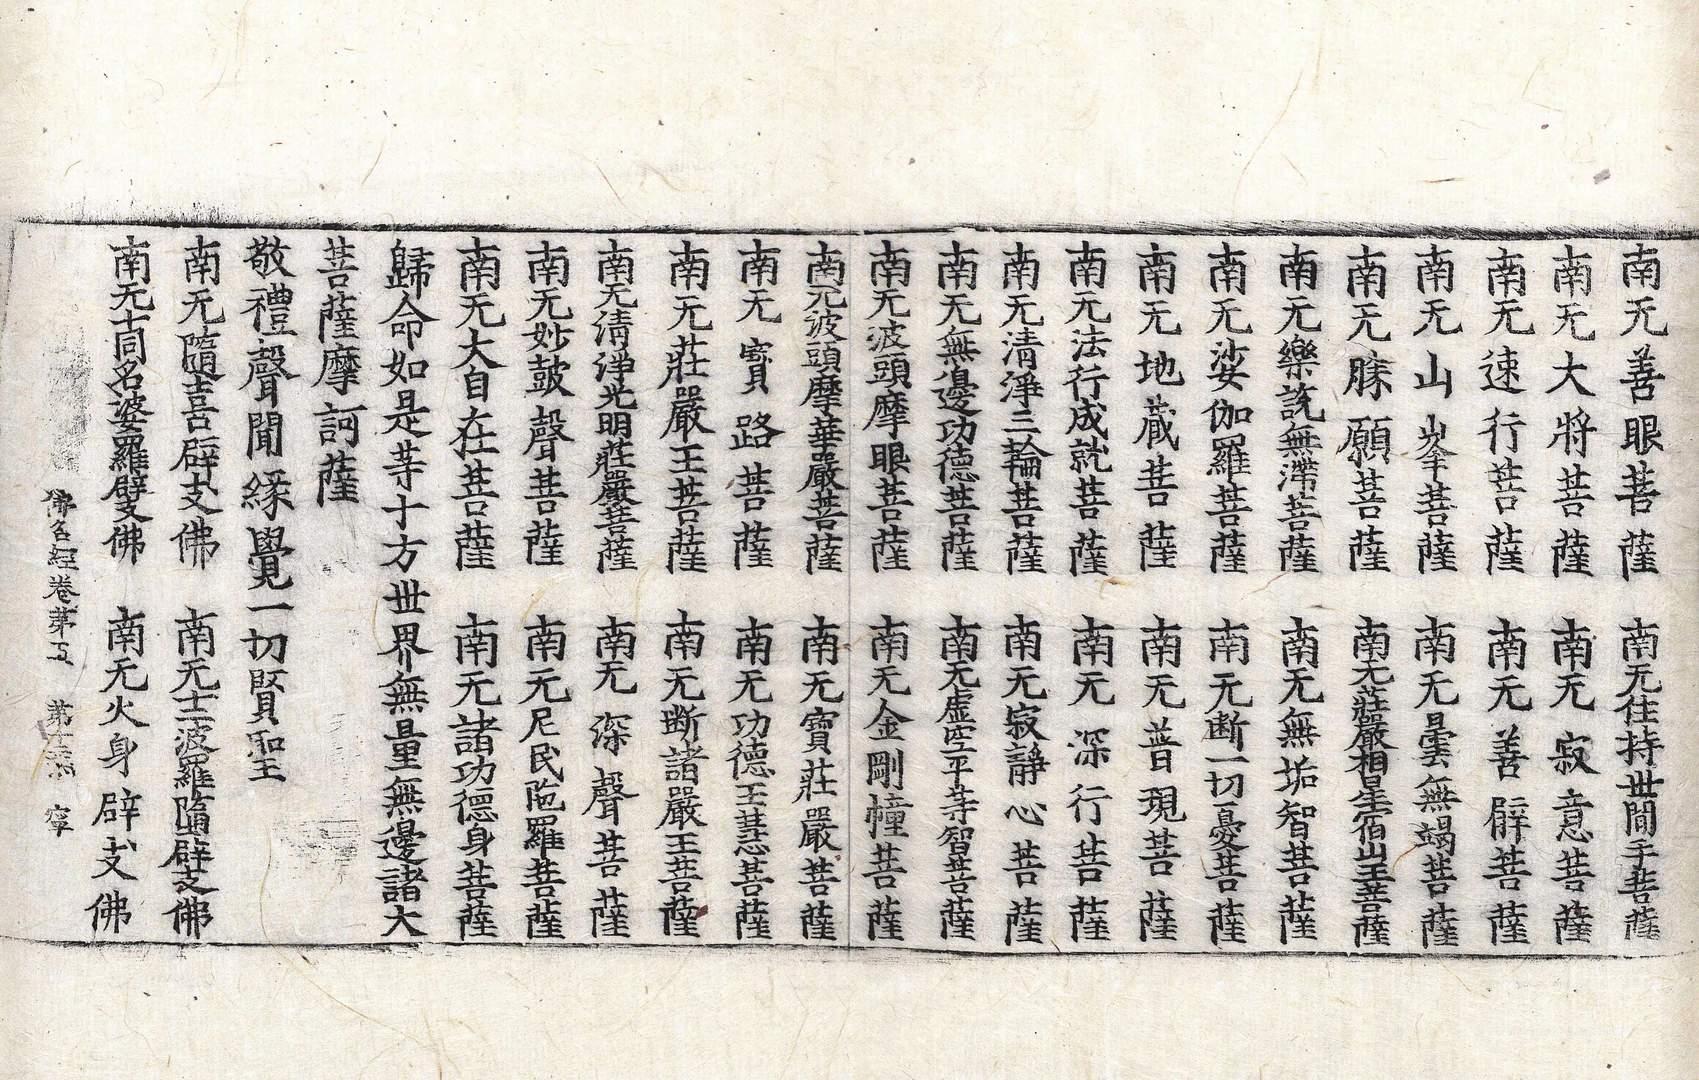 南无善眼菩薩　南无住持世間手菩薩
南无大將菩薩　南无寂意菩薩
南无速行菩薩　南无善臂菩薩
南无山峯菩薩　南无曇無竭菩薩
南无勝願菩薩　南无莊嚴相星宿山王菩薩
南无樂說無滯菩薩　南无無垢智菩薩
南无娑伽羅菩薩　南无断一切憂菩薩
南无地藏菩薩　南无普現菩薩
南无法行成就菩薩　南无深行菩薩
南无清淨三輪菩薩　南无寂靜心菩薩
南无無邊功德菩薩　南无虛空平等智菩薩
南无波頭摩眼菩薩　南无金剛幢菩薩
南无波頭摩華嚴菩薩　南无寶莊嚴菩薩
南无寶路菩薩　南无功德王慧菩薩
南无莊嚴王菩薩　南无断諸嚴王菩薩
南无清淨光明莊嚴菩薩　南无深聲菩薩
南无妙鼓聲菩薩　南无尼民陁羅菩薩
南无大自在菩薩　南无諸功德身菩薩
歸命如是等十方世界無量無邊諸大
菩薩摩訶薩
敬禮聲聞緣覺一切賢聖
南无隨喜辟支佛　南无十二婆羅墮辟支佛
南无十同名婆羅辟支佛　南无火身辟支佛
佛名經卷第五　第十　寧